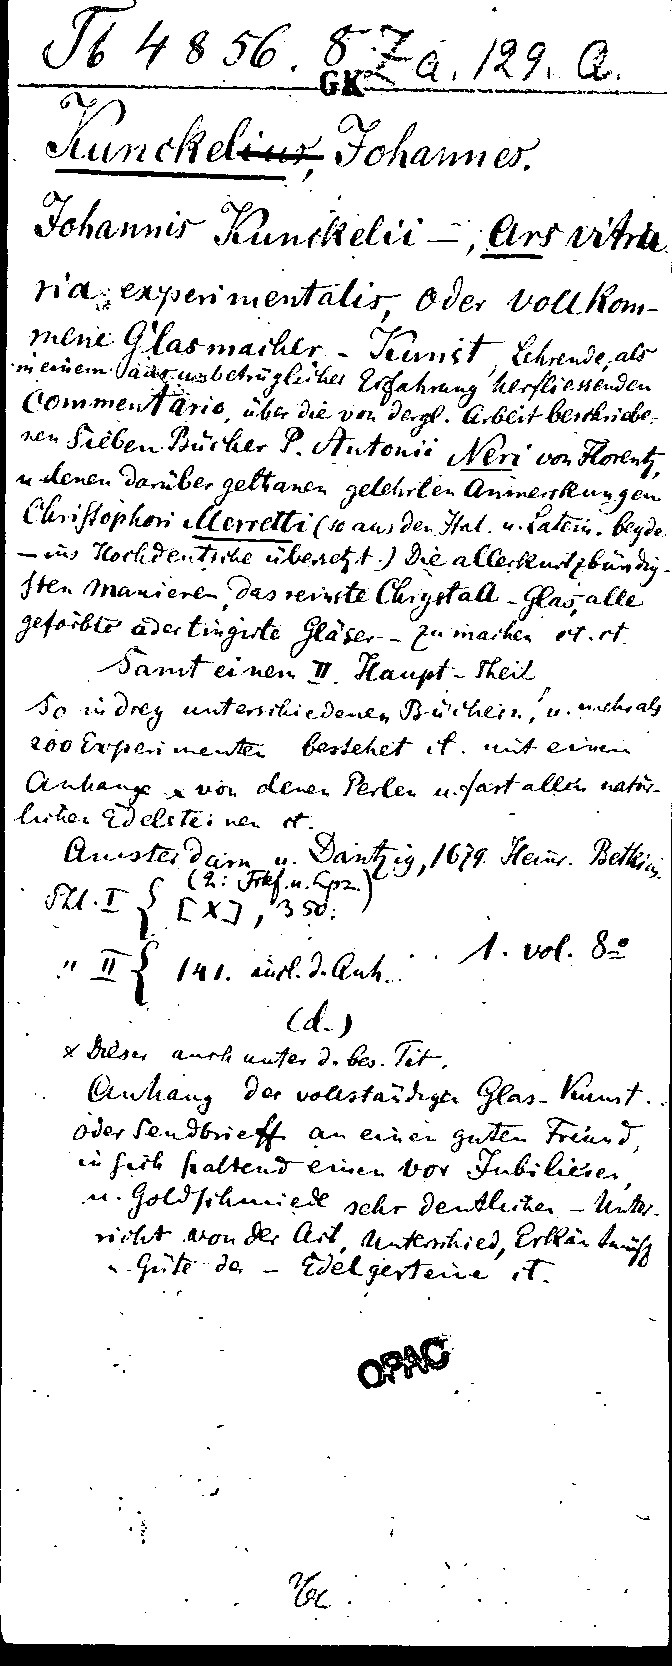 Tb 4856. 8. Z a. 129. A.
GK
Kunckelius, Johannes.
Johannis Kunckelii –, Ars vitra
ria experimentalis, oder Vollkom-
mene Glasmacher - Kunst, Lehrende, als
in einem aus unbetrüglicher Erfahrung herfliessenden
Commentario, über die von dergl. Arbeit beschriebe-
nen Sieben Bücher P. Antonii Neri von Florentz,
u denen darüber gethanen gelehrten Anmerckungen
Christophori Merretti (so aus den Ital. u. Latein. beyde
– ins Hochdeutsche übersetzt.) Die allerkurtzbündig-
sten Manieren, das reinste Chrystall - Glas, alle
gefärbte oder tingirte Gläser – zu machen et. et.
Samt einem II. Haupt - Theil
So in drey unterschiedenen Büchern, u. mehr als
200 Experimenten bestehet et. mit einem
Anhange x von denen Perlen u. fast allen natür-
lichen Edelsteinen et.
Amsterdam u. Dantzig, 1679. Heinr. Betkius.
(2: Frkf. u. Lpz.)
Thl. I { [X], 350.
" II { 141. incl. d. Anh. 1. vol. 8º
(d.)
x Dieser auch unter d. bes. Tit.
Anhang der vollständigen Glas-Kunst
oder Sendbrieff an einen guten Freund,
in sich haltend einen vor Jubilierer,
u. Goldschmiede sehr deutlichen – Unter-
richt von der Art, Unterschied, Erkäntnüss
u. Güte der – Edelgesteine et.
OPAC